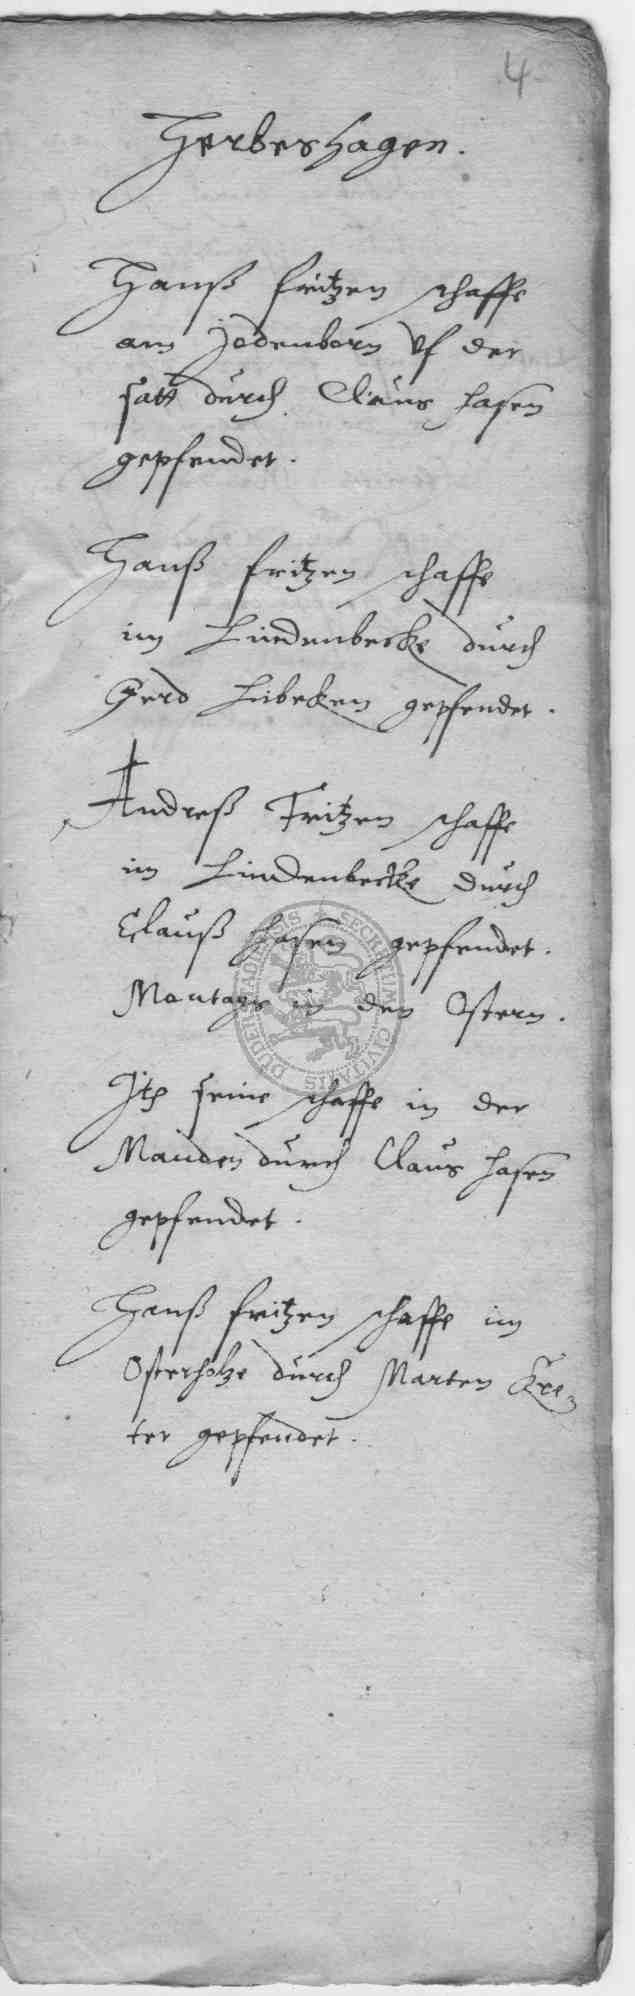 4
Herbershagen.
Hanß fritzen schaffe
am Jodenborn vf der
satt durch Claus hasen
gepfendet.
Hanß fritzen schaffe
im Lindenbecke durch
Gerd Libeken gepfendet.
Andreß Fritzen schaffe
im Lindenbecke durch
Clauß hasen gepfendet.
Montags in den Ostern.
Itz seine schaffe in der
durch Claus hasen
gepfendet.
Hanß fritzen schaffe im
Osterholze durch Marten Kre-
ter gepfendet.
SECRETUM CIVITATIS DUDERSTADIENSIS